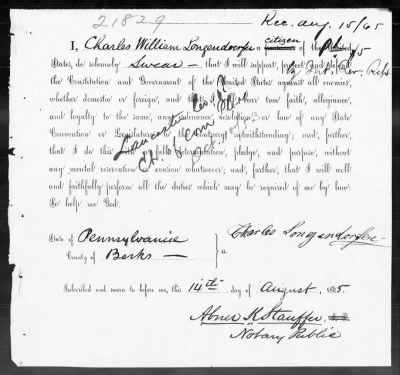 21829
Rec. Aug. 15/65
I, Charles William Longendorfer a citizen of the United
States, do solemnly swear — that I will support, protect and defend
the Constitution and Government of the United States against all enemies,
whether domestic or foreign, and that I will bear true faith, allegiance,
and loyalty to the same, any ordinance, resolution, or law of any State
Convention or Legislature to the contrary notwithstanding; and, further,
that I do this with a full determination, pledge, and purpose, without
any mental reservation or evasion whatsoever; and, further, that I will well
and faithfully perform all the duties which may be required of me by law.
So help me God.
Lancaster Co
Charles Longendorfer
State of Pennsylvania
County of Berks — ss
Subscribed and sworn to before me, this 14th day of August, 1865.
Abner K Stauffer
Notary Public